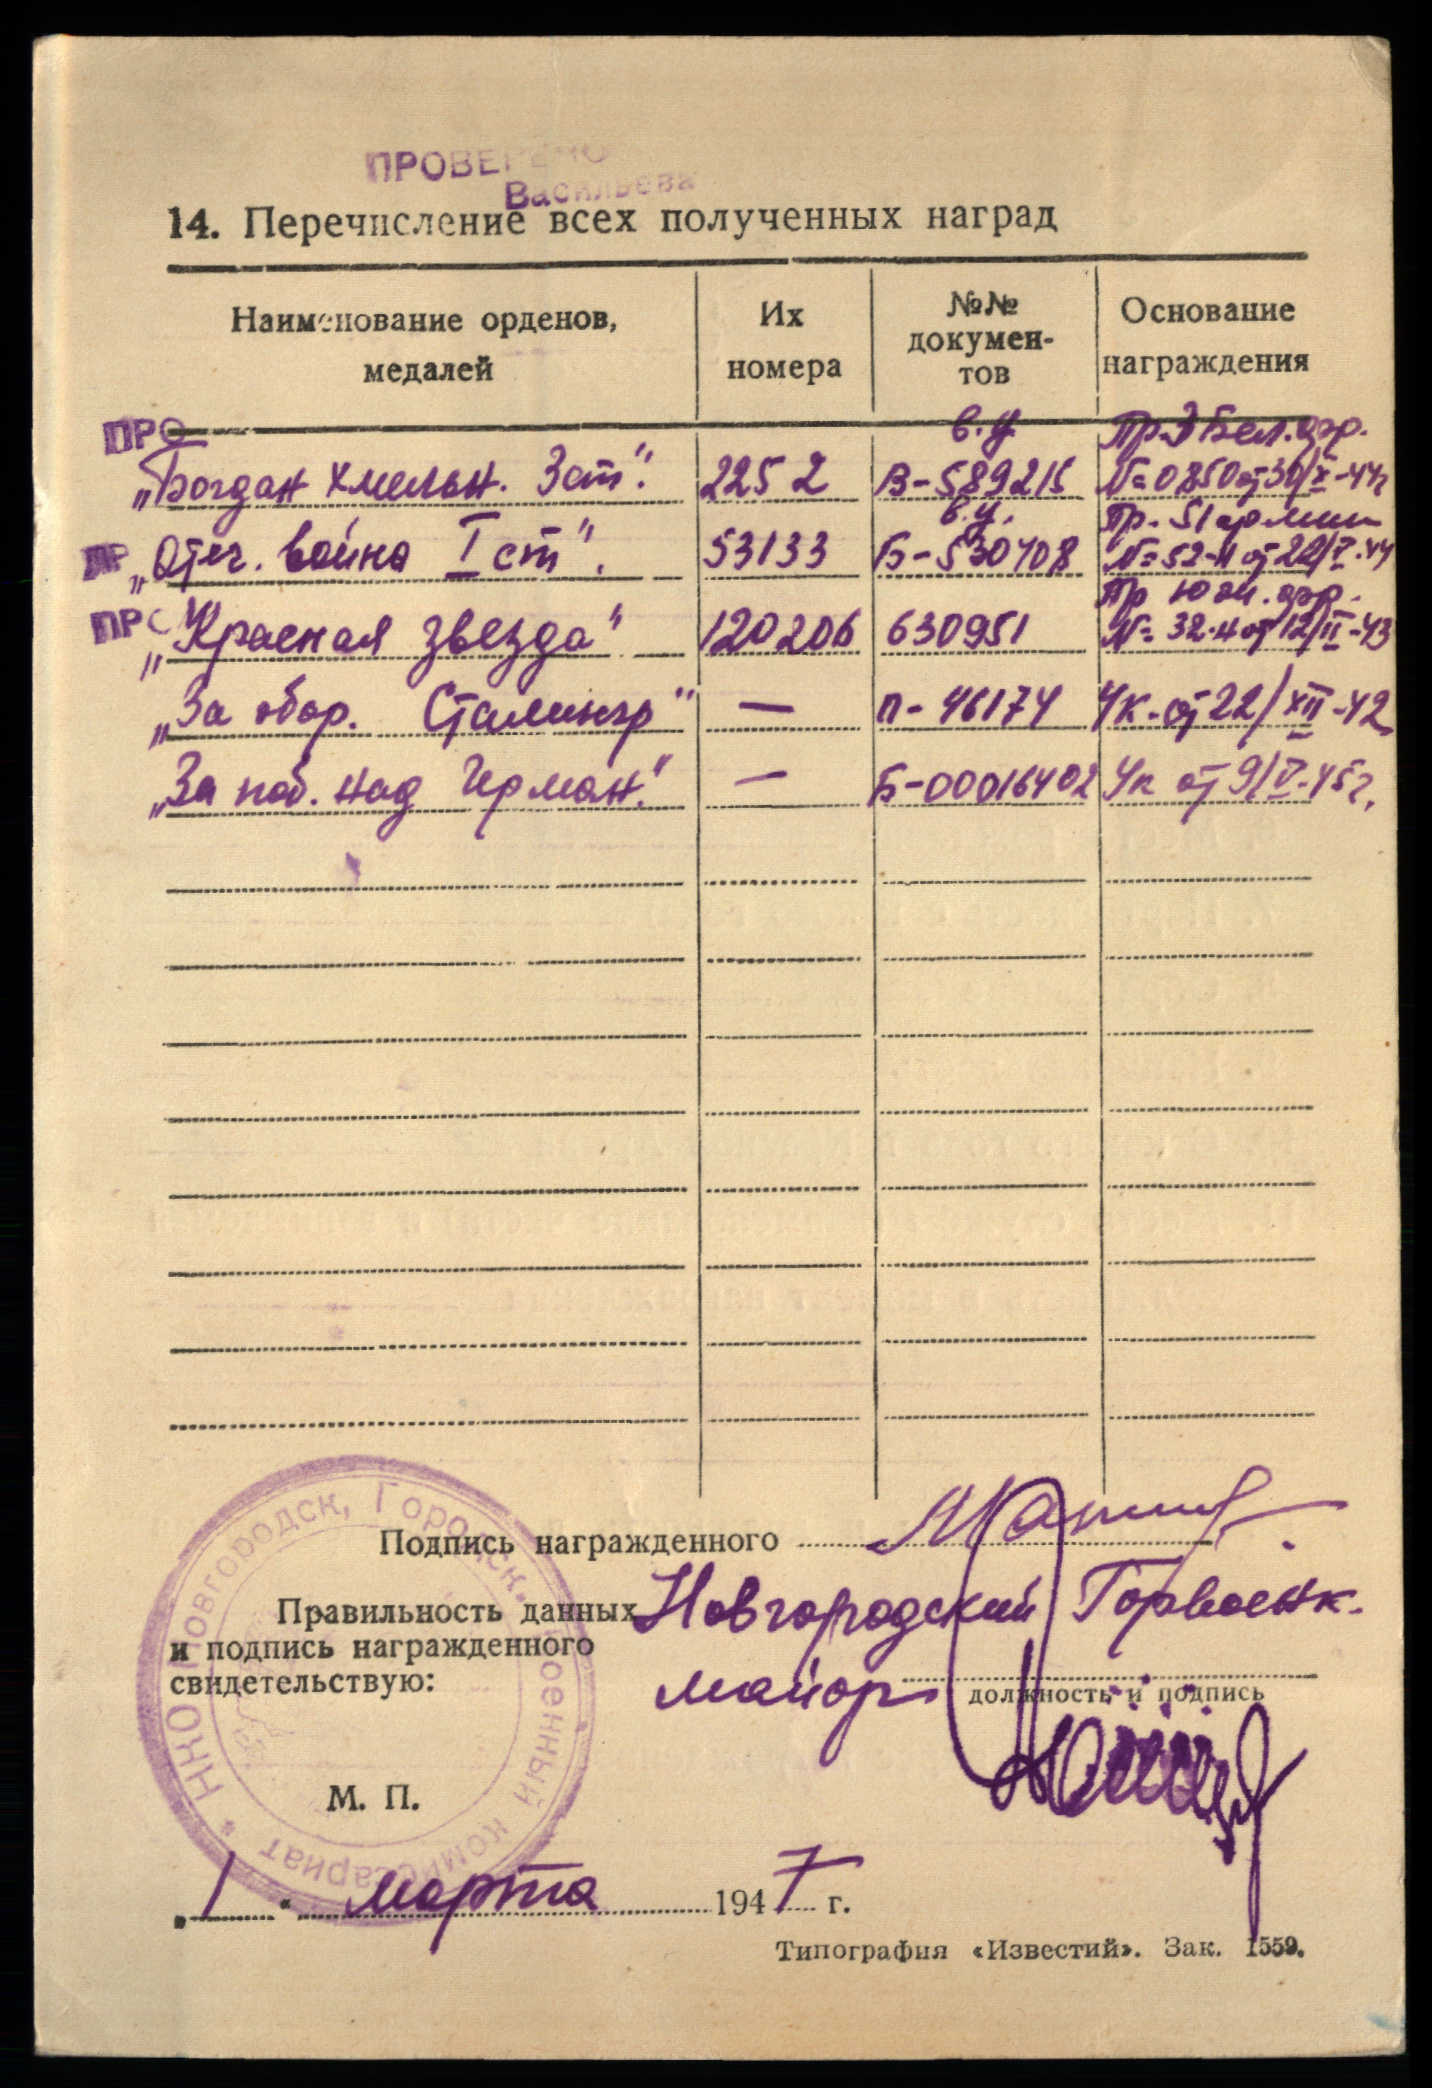 ПРОВЕРЕНО
Васильева
14. Перечисление всех полученных наград
Наименование орденов, медалей
Их номера
№№ документов
Основание награждения
ПРО
в. у. Пр. Бел. фр.
„Богдан Хмельн. 3 ст." 2252 В-589215 N=0850 от 30/X-44 г
в. у. Пр. 51 армии
ПР „Отеч. война I ст". 53133 Б-530408 N=52-н от 22/V-44
Пр Юж. фр.
ПРО „Красная звезда" 120206 630951 N=32-н от 12/II-43
„За обор. Сталингр" — П-46174 Ук. от 22/XII-42
„За поб. над Герман." — Б-00016402 Ук от 9/V-45 г.
Подпись награжденного
Правильность данных и подпись награжденного свидетельствую:
Новгородский Горвоенк.
майор
должность и подпись
М. П.
ННО Новгородск, Городск. военный комиссариат
„1" марта 1947 г.
Типография «Известий». Зак. 1559.